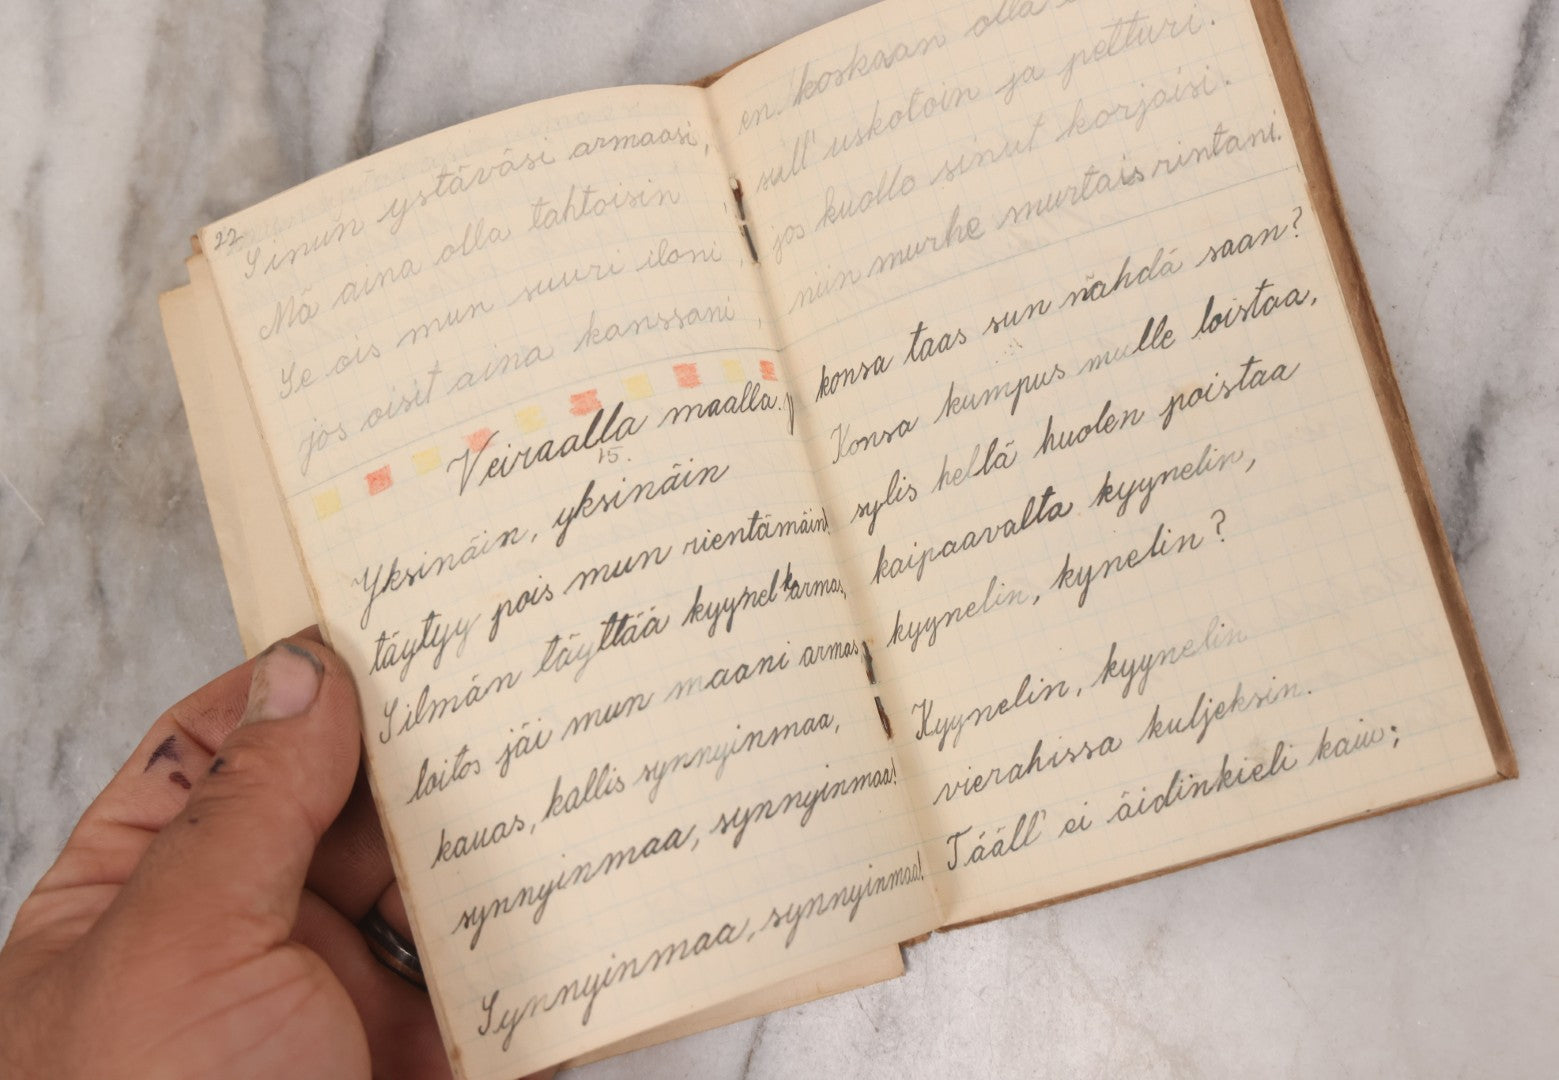 22
Sinun ystäväsi armaasi,
Mä aina olla tahtoisin
Se ois mun suuri iloni,
jos oisit aina kanssani,
Veiraalla maalla.
15.
Yksinäin, yksinäin
täytyy pois mun rientämäin!
Silmän täyttää kyynel karmas,
loitos jäi mun maani armas,
kauas, kallis synnyinmaa,
synnyinmaa, synnyinmaa!
Synnyinmaa, synnyinmaa!
en koskaan olla
sull' uskotoin ja petturi.
jos kuollo sinut korjaisi.
niin murhe murtais rintani.
konsa taas sun nähdä saan?
Konsa kumpus mulle loistaa,
sylis hellä huolen poistaa
kaipaavalta kyynelin,
kyynelin, kynelin?
Kyynelin, kyynelin
vierahissa kuljeksin.
Tääll' ei äidinkieli kaiu;